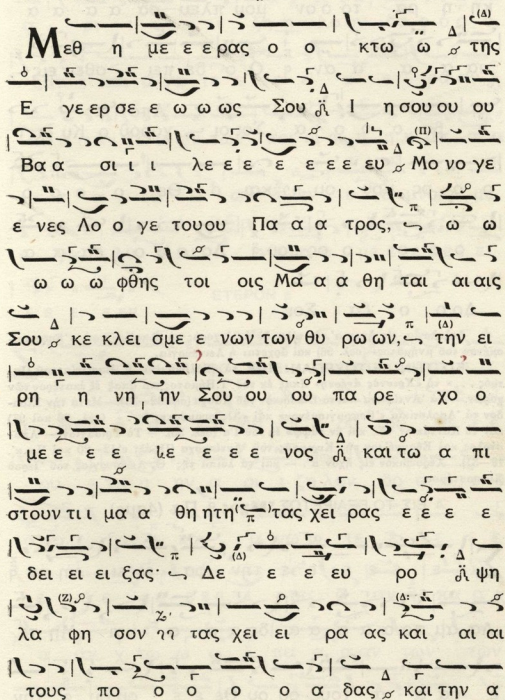 Μεθ η με ε ε ρας ο ο κτω ω της
Ε γε ερ σε ε ω ω ως Σου Ι η σου ου ου
Βα α σι ι ι λε ε ε ε ε ε ε ευ Μο νο γε
ε νες Λο ο γε του ου Πα α α τρος, ω ω
ω ω ω φθης τοι οις Μα α α θη ται αι αις
Σου κε κλει σμε ε νων των θυ ρω ων, την ει
ρη η νη ην Σου ου ου πα ρε χο ο
με ε ε ε ε ε ε ε νος και τω α πι
στουν τι ι μα α θη η τη τας χει ρας ε ε ε ε
δει ει ει ξας· Δε ε ε ευ ρο ψη
λα φη σον τας χει ει ρα ας και αι αι
τους πο ο ο ο ο α δας και την α